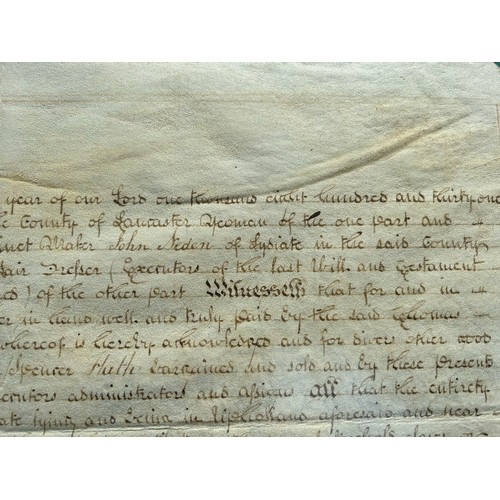 year of our Lord one thousand eight hundred and thirty one
County of Lancaster Yeoman of the one part and
Maker John Seden of Lydiate in the said County
Hair Dresser (Executors of the last Will and Testament
of the other part Witnesseth that for and in
in hand well and truly paid by the said Thomas
whereof is hereby acknowledged and for divers other good
Spencer Hath bargained and sold and by these presents
executors administrators and assigns all that the entirety
lying and being in Upholland aforesaid and near